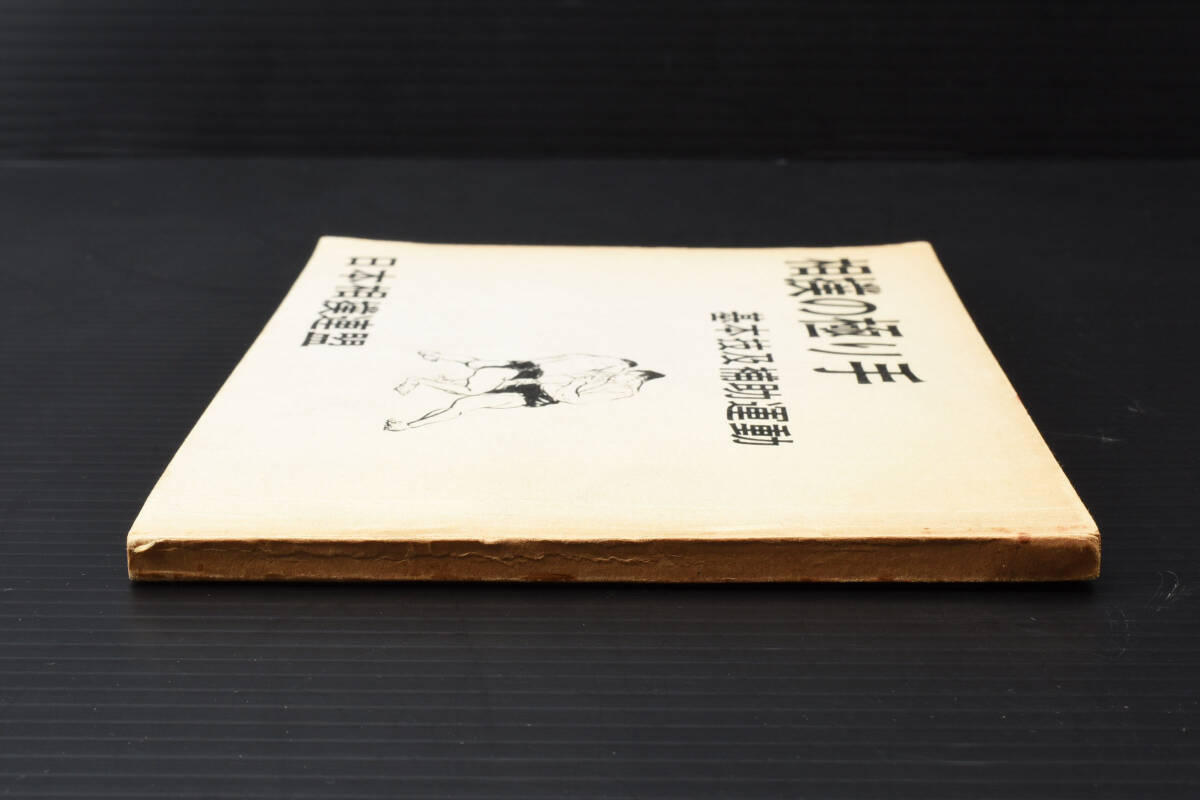 相撲の極り手
基本技及補助運動
日本相撲連盟